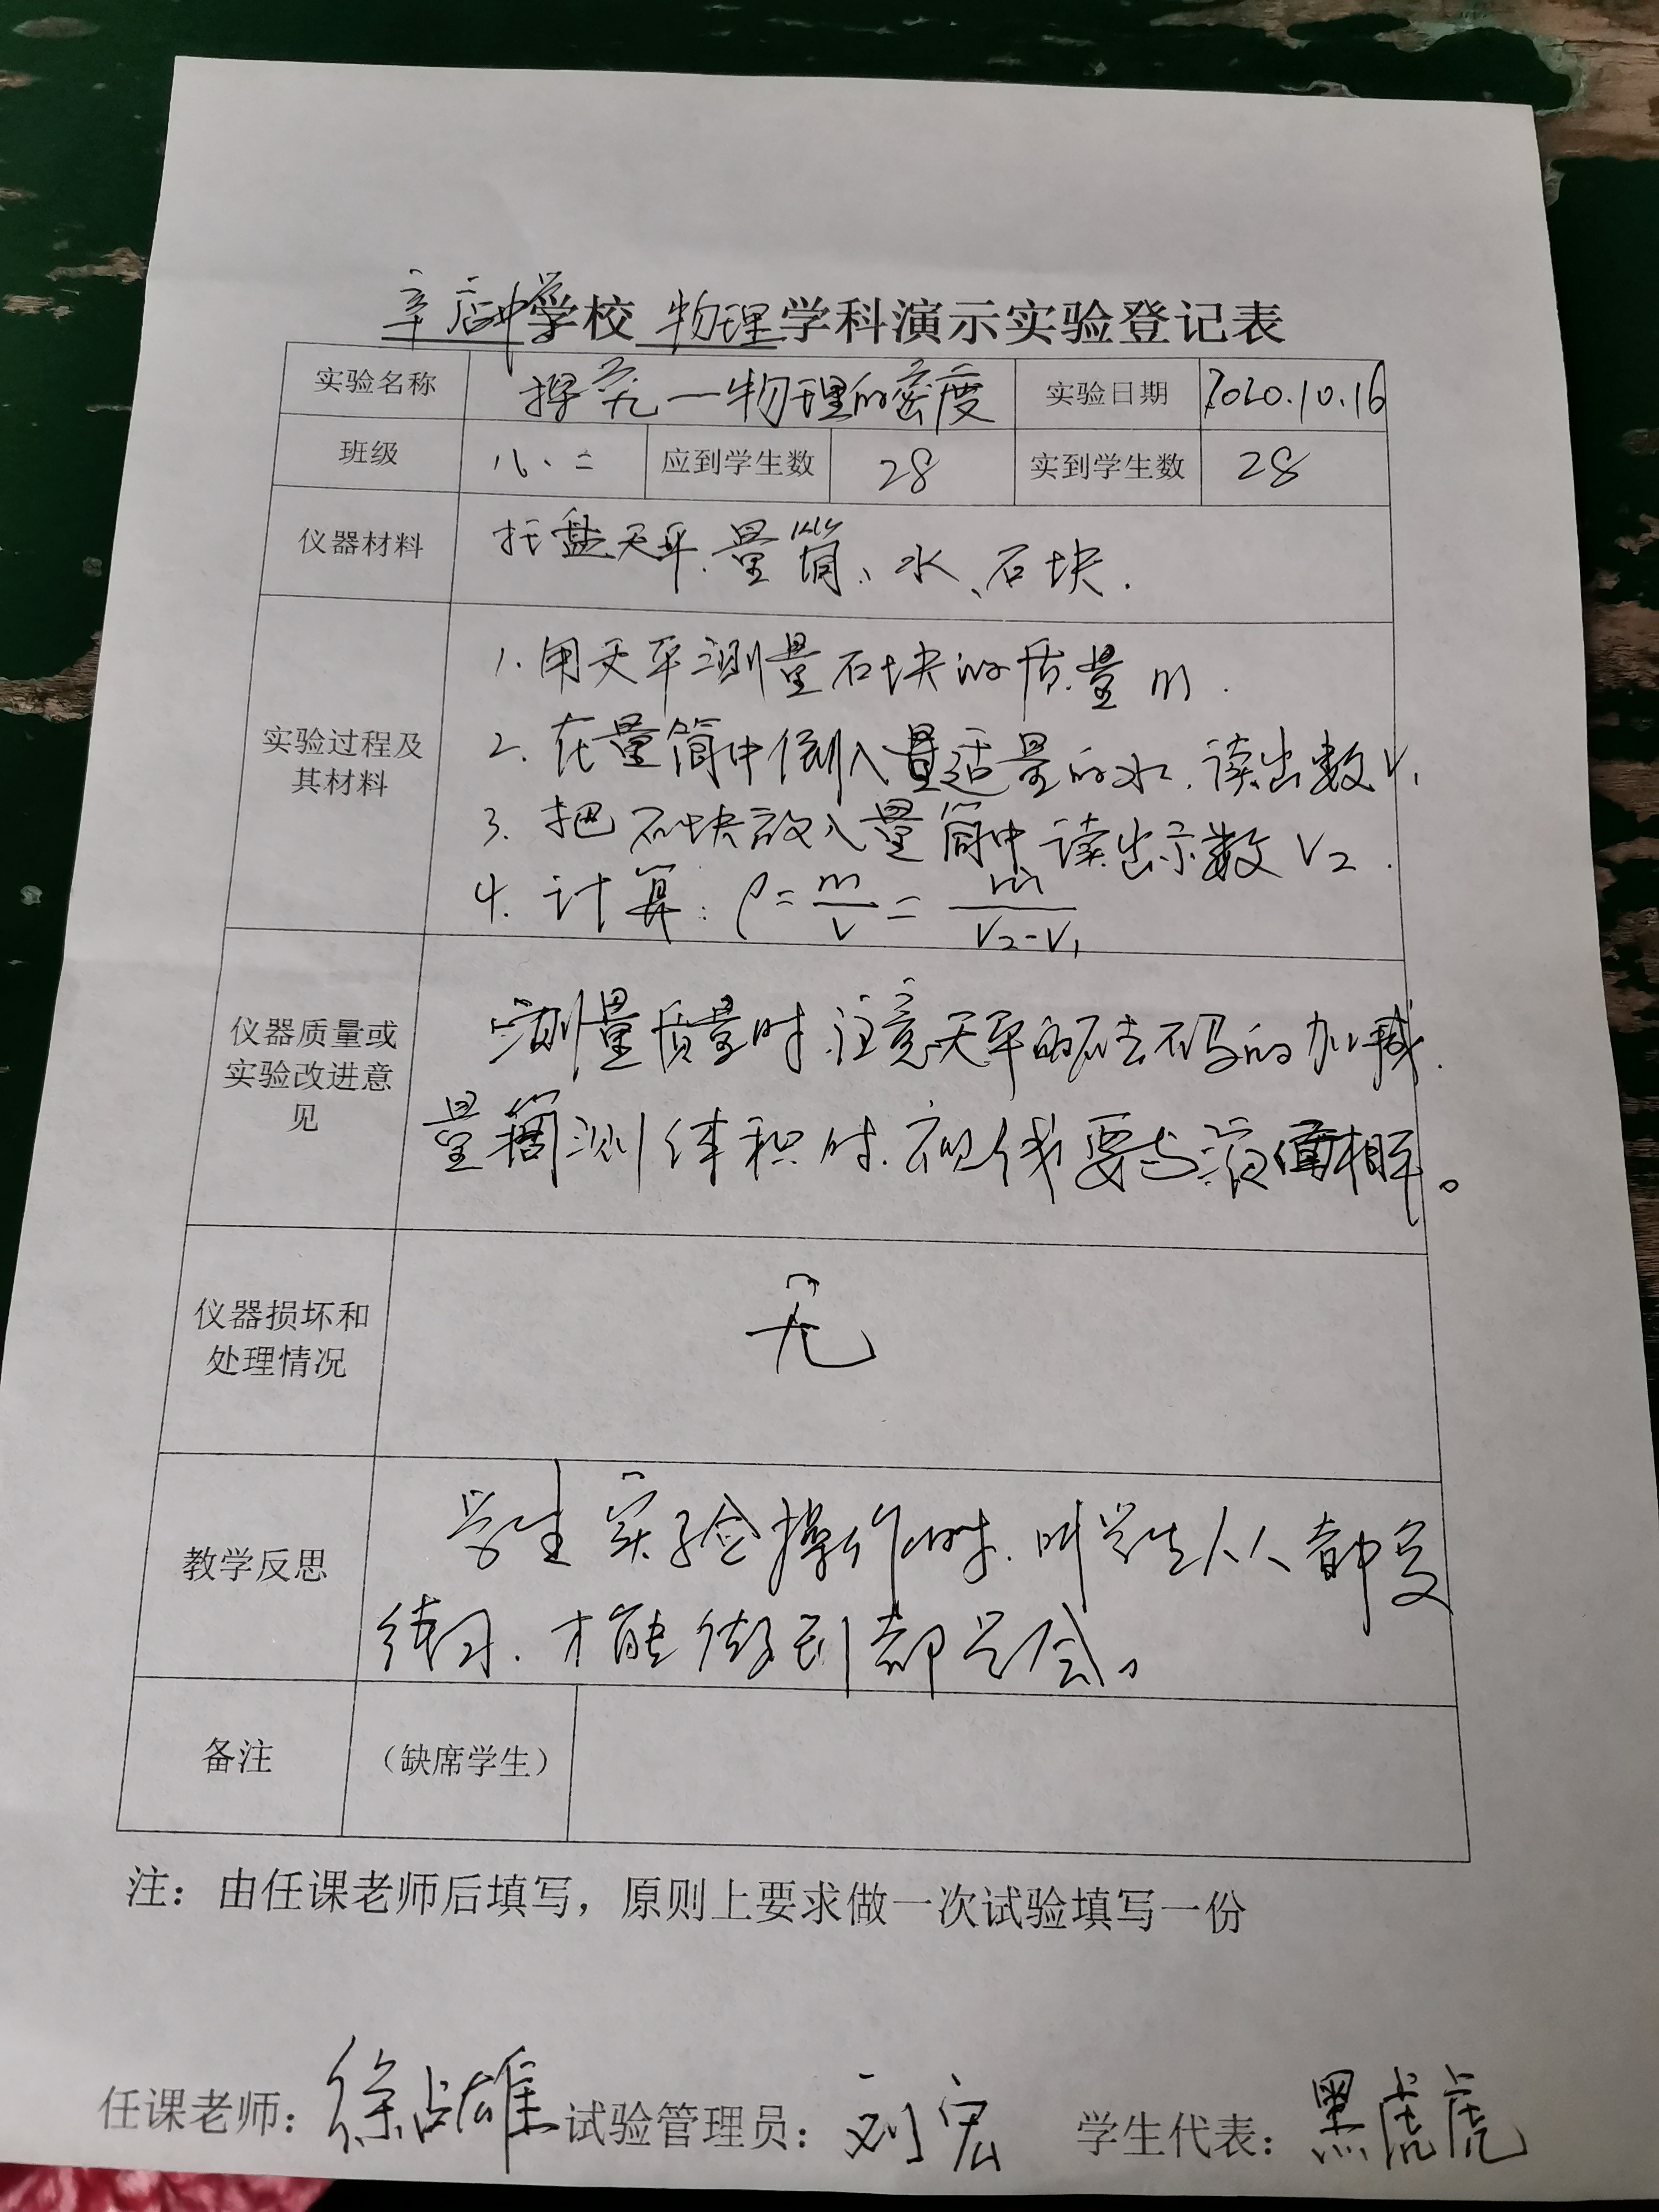 辛店中学学校 物理 学科演示实验登记表
实验名称 探究一物理的密度 实验日期 2020.10.16
班级 八、二 应到学生数 28 实到学生数 28
仪器材料 托盘天平、量筒、水、石块.
实验过程及
其材料
1. 用天平测量石块的质量 m.
2. 在量筒中倒入适量的水. 读出数V₁
3. 把石块放入量筒中读出示数 V₂.
4. 计算: ρ=m/V=m/(V₂-V₁)
仪器质量或
实验改进意
见
测量质量时.注意天平的砝码的加减.
量筒测体积时.视线要与液面相平。
仪器损坏和
处理情况
无
教学反思
学生实验操作时. 叫学生人人都交
练习. 才能做到都是会。
备注 （缺席学生）
注：由任课老师后填写，原则上要求做一次试验填写一份
任课老师：徐占雄 试验管理员：刘宏 学生代表：黑虎虎